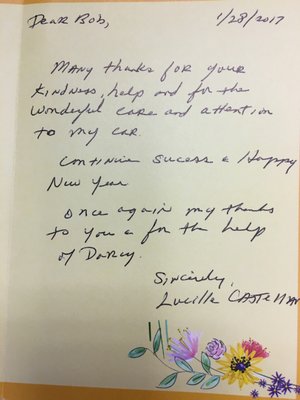 Dear Bob, 1/28/2017
Many thanks for your
kindness, help and for the
wonderful care and attention
to my car.
Continue sucess & Happy
New Year
Once again my thanks
to you & for the help
of Darcy.
Sincerely,
Lucille